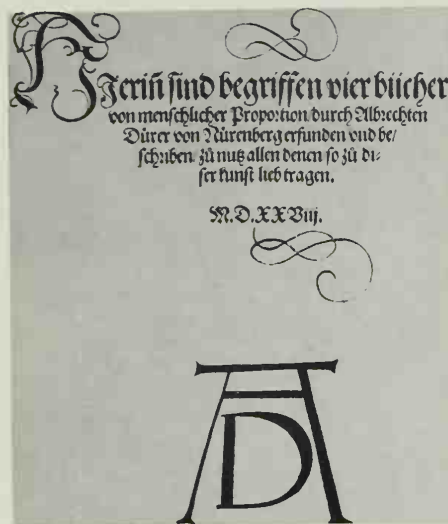 HJerinn sind begriffen vier bücher
von menschlicher Proportion/durch Albrechten
Dürer von Nürenberg erfunden vnd be/
schriben zů nutz allen denen so zů di-
ser kunst lieb tragen.
M.D.XXViij.
AD